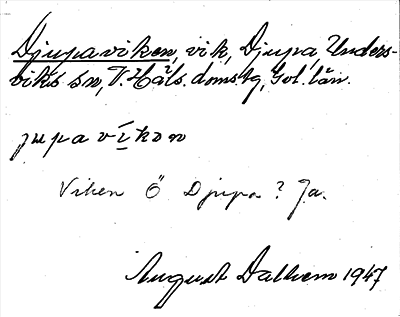 Djupaviken, vik, Djupa, Unders-
viks sn, V. Häls. doms.tg, Gvl. län.
jupavikən
Viken Ö Djupa? Ja.
August Dalhem 1947